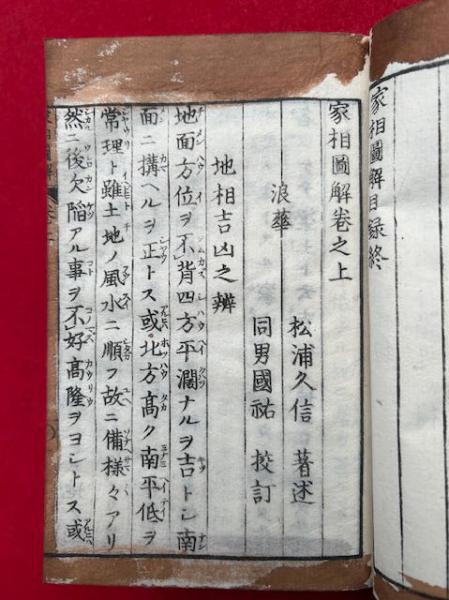 家相圖解目録終
家相圖解卷之上
浪華
松浦久信 著述
同男國祐 挍訂
地相吉凶之辨
地面方位ヲ不背四方平濶ナルヲ吉トシ南
面ニ搆ヘルヲ正トス或北方髙ク南平低ヲ
常理ト雖土地ノ風水ニ順フ故ニ備様々アリ
然ニ後欠陥アル事ヲ不好髙隆ヲヨシトス或
家相圖解